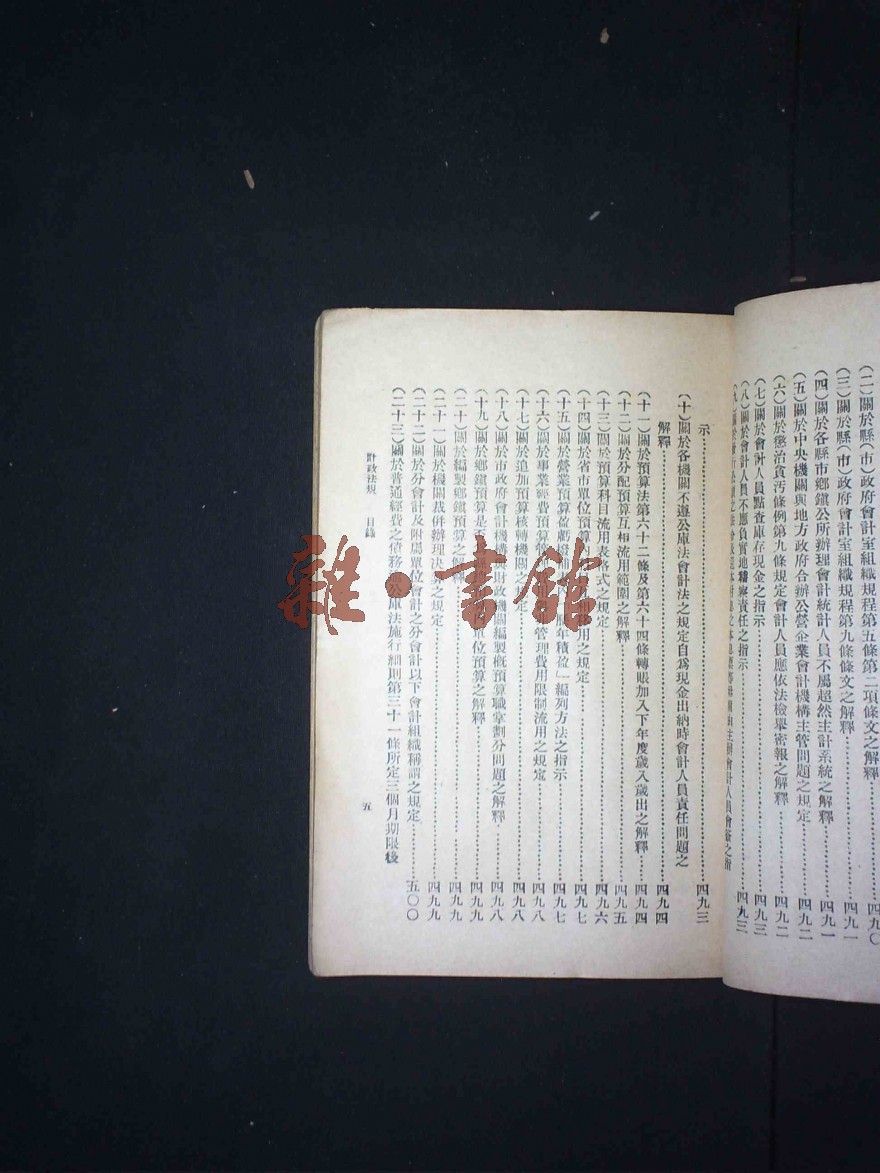 (二)關於縣(市)政府會計室組織規程第五條第二項條文之解釋⋯⋯四九〇
(三)關於縣(市)政府會計室組織規程第九條條文之解釋⋯⋯四九一
(四)關於各縣市鄉鎮公所辦理會計統計人員不屬超然主計系統之解釋⋯⋯四九一
(五)關於中央機關與地方政府合辦公營企業會計機構主管問題之規定⋯⋯四九二
(六)關於懲治貪汚條例第九條規定會計人員應依法檢舉密報之解釋⋯⋯四九二
(七)關於會計人員點查庫存現金之指示⋯⋯四九三
(八)關於會計人員不應負實地稽察責任之指示⋯⋯四九三
(九)關於
主辦會計人員會簽之指
示⋯⋯四九三
(十)關於各機關不遵公庫法會計法之規定自為現金出納時會計人員責任問題之
解釋⋯⋯四九四
(十一)關於預算法第六十二條及第六十四條轉賬加入下年度歲入歲出之解釋⋯⋯四九四
(十二)關於分配預算互相流用範圍之解釋⋯⋯四九五
(十三)關於預算科目流用表格式之規定⋯⋯四九六
(十四)關於省市單位預算流用之規定⋯⋯四九七
(十五)關於營業預算盈虧撥補年積盈」編列方法之指示⋯⋯四九七
(十六)關於事業經費預算管管理費用限制流用之規定⋯⋯四九八
(十七)關於追加預算核轉機關之規定⋯⋯四九八
(十八)關於市政府會計機構與財政機關編製概預算職掌劃分問題之解釋⋯⋯四九八
(十九)關於鄉鎮預算是否單位預算之解釋⋯⋯四九九
(二十)關於編製鄉鎮預算之解釋⋯⋯四九九
(二十一)關於機關裁併辦理決算之規定⋯⋯四九九
(二十二)關於分會計及附屬單位會計之分會計以下會計組織稱謂之規定⋯⋯五〇〇
(二十三)關於普通經費之債務公庫法施行細則第三十一條所定三個月期限後
財政法規 目錄
五
雜·書館